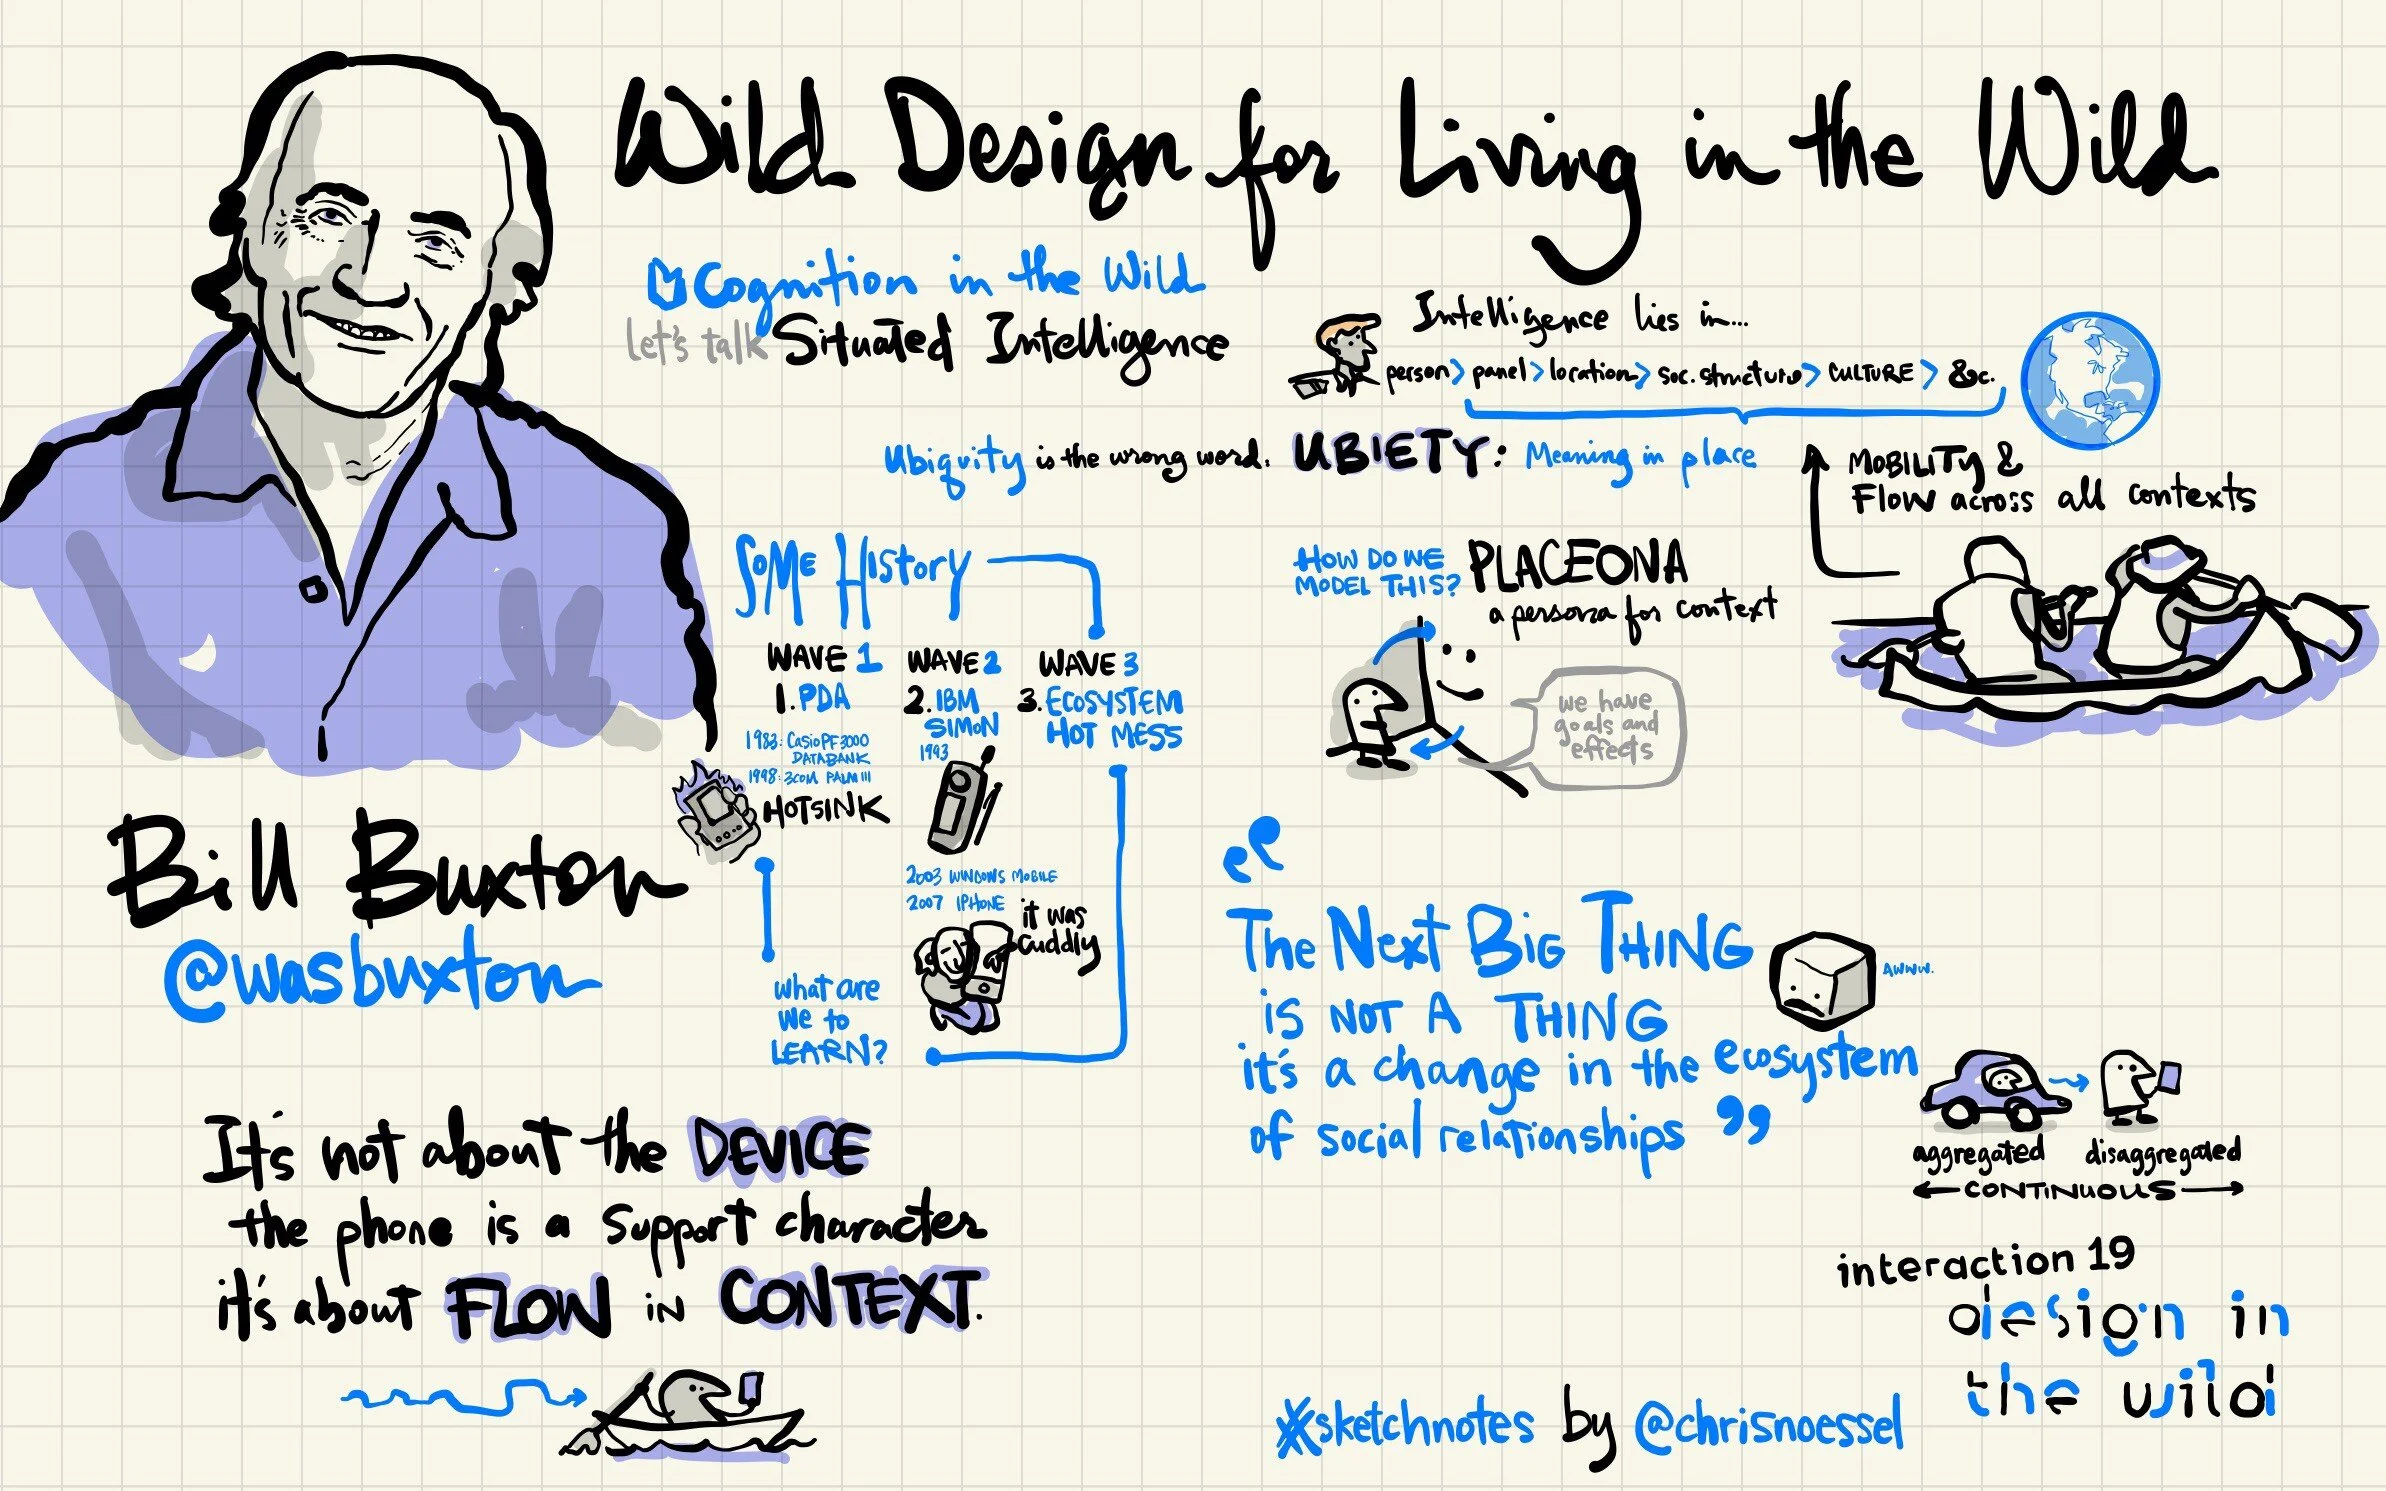 Wild Design for Living in the Wild
Cognition in the Wild
Let's talk Situated Intelligence
Intelligence lies in...
person > panel > location > soc. structure > CULTURE > &c.
Ubiquity is the wrong word. UBIETY: Meaning in place
MOBILITY &
FLOW across all contexts
HOW DO WE
MODEL THIS?
PLACEONA
a persona for context
we have
goals and
effects
SOME HISTORY
WAVE 1
1. PDA
1983: CASIO PF3000
DATABANK
1998: 3COM PALM III
HOTSINK
WAVE 2
2. IBM
SIMON
1993
2003 WINDOWS MOBILE
2007 IPHONE
it was
cuddly
WAVE 3
3. ECOSYSTEM
HOT MESS
what are
we to
LEARN?
Bill Buxton
@wasbuxton
It's not about the DEVICE
the phone is a support character
it's about FLOW IN CONTEXT.
“The Next Big THING
is NOT A THING
it's a change in the ecosystem
of social relationships”
AWWW.
aggregated disaggregated
CONTINUOUS
interaction 19
design in
the wild
#sketchnotes by @chrisnoessel